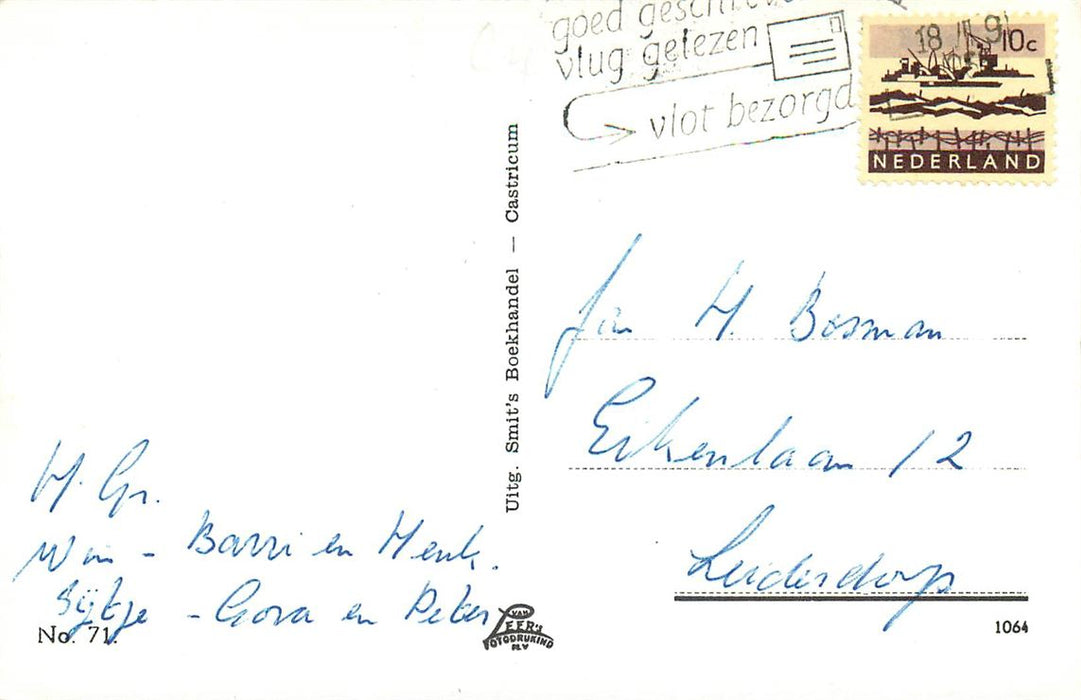 goed geschreven
vlug gelezen
vlot bezorgd
18 III 9
10c
NEDERLAND
Uitg. Smit's Boekhandel — Castricum
H. Bosman
Eikenlaan 12
Leiderdorp
H. Gr.
Wim - Barri en Henk.
Sijtje - Gora en Peter
No. 71.
VAN
LEER'S
FOTODRUKIND
N.V
1064